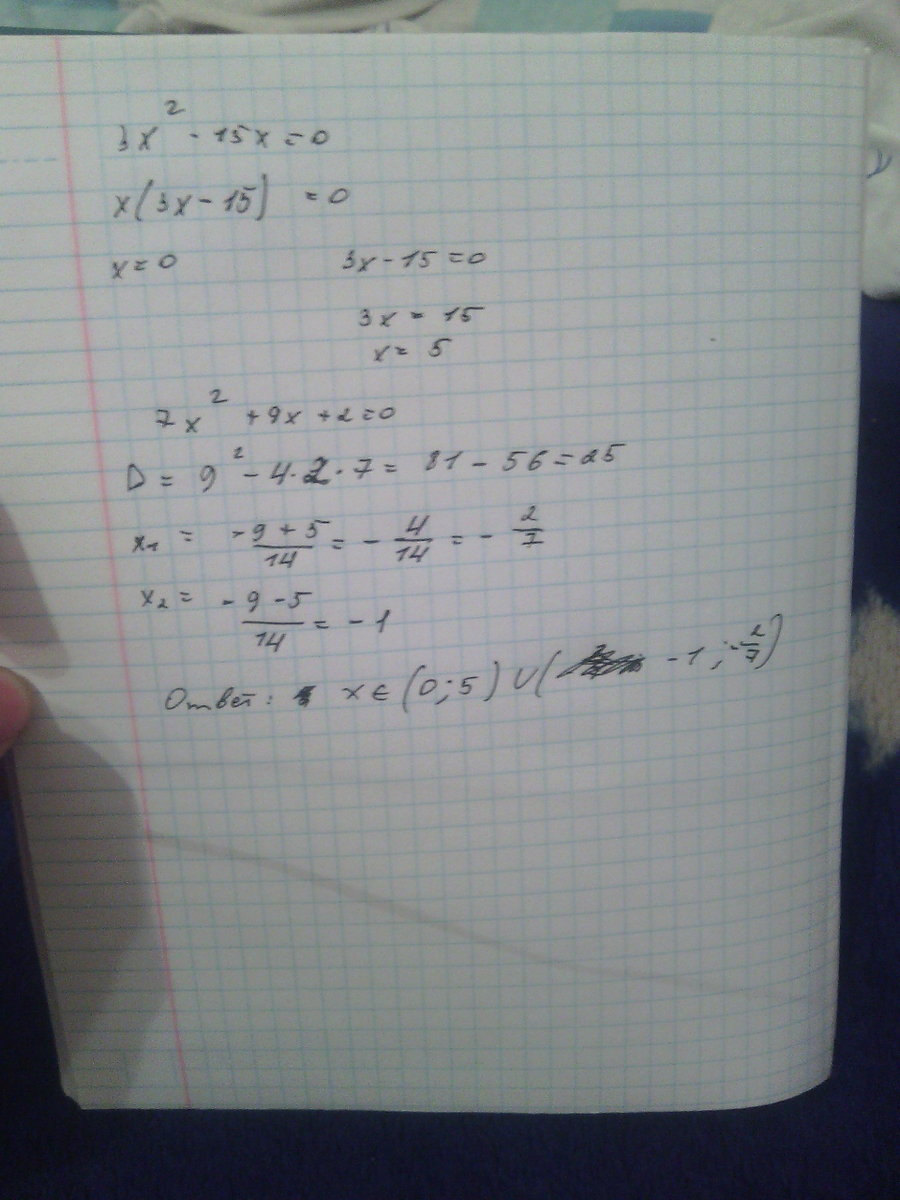 3x² - 15x = 0
x(3x - 15) = 0
x = 0 3x - 15 = 0
3x = 15
x = 5
7x² + 9x + 2 = 0
D = 9² - 4·2·7 = 81 - 56 = 25
x₁ = -9 + 5 / 14 = - 4/14 = - 2/7
x₂ = -9 - 5 / 14 = -1
Ответ: x ∈ (0; 5) ∪ ( -1 ; -2/7)